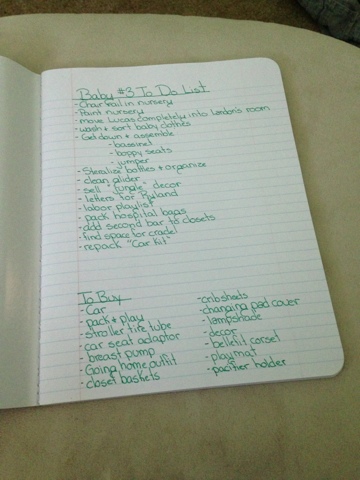 Baby #3 To Do List
- Chair rail in nursery
- Paint nursery
- Move Lucas completely into Landon's room
- wash + sort baby clothes
- Get down + assemble
- bassinet
- boppy seats
- jumper
- Steralize bottles + organize
- clean glider
- sell "jungle" decor
- letters for Ryland
- labor playlist
- pack hospital bags
- add second bar to closets
- find space for cradel
- repack "Car Kit"
To Buy
- Car
- pack + play
- stroller tire tube
- car seat adaptor
- breast pump
- Going home outfit
- closet baskets
- crib sheets
- changing pad cover
- lampshade
- decor
- bellefit corset
- playmat
- pacifier holder